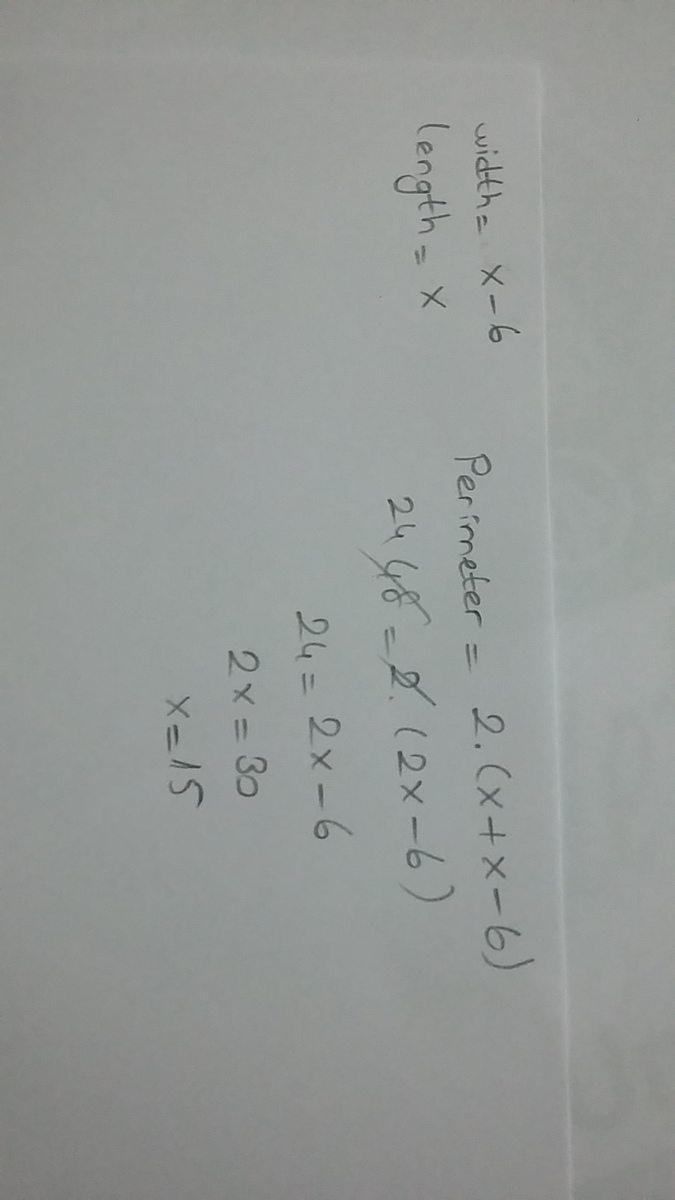 width = x - 6
length = x
Perimeter = 2.(x + x - 6)
24 48 = 2.(2x - 6)
24 = 2x - 6
2x = 30
x = 15